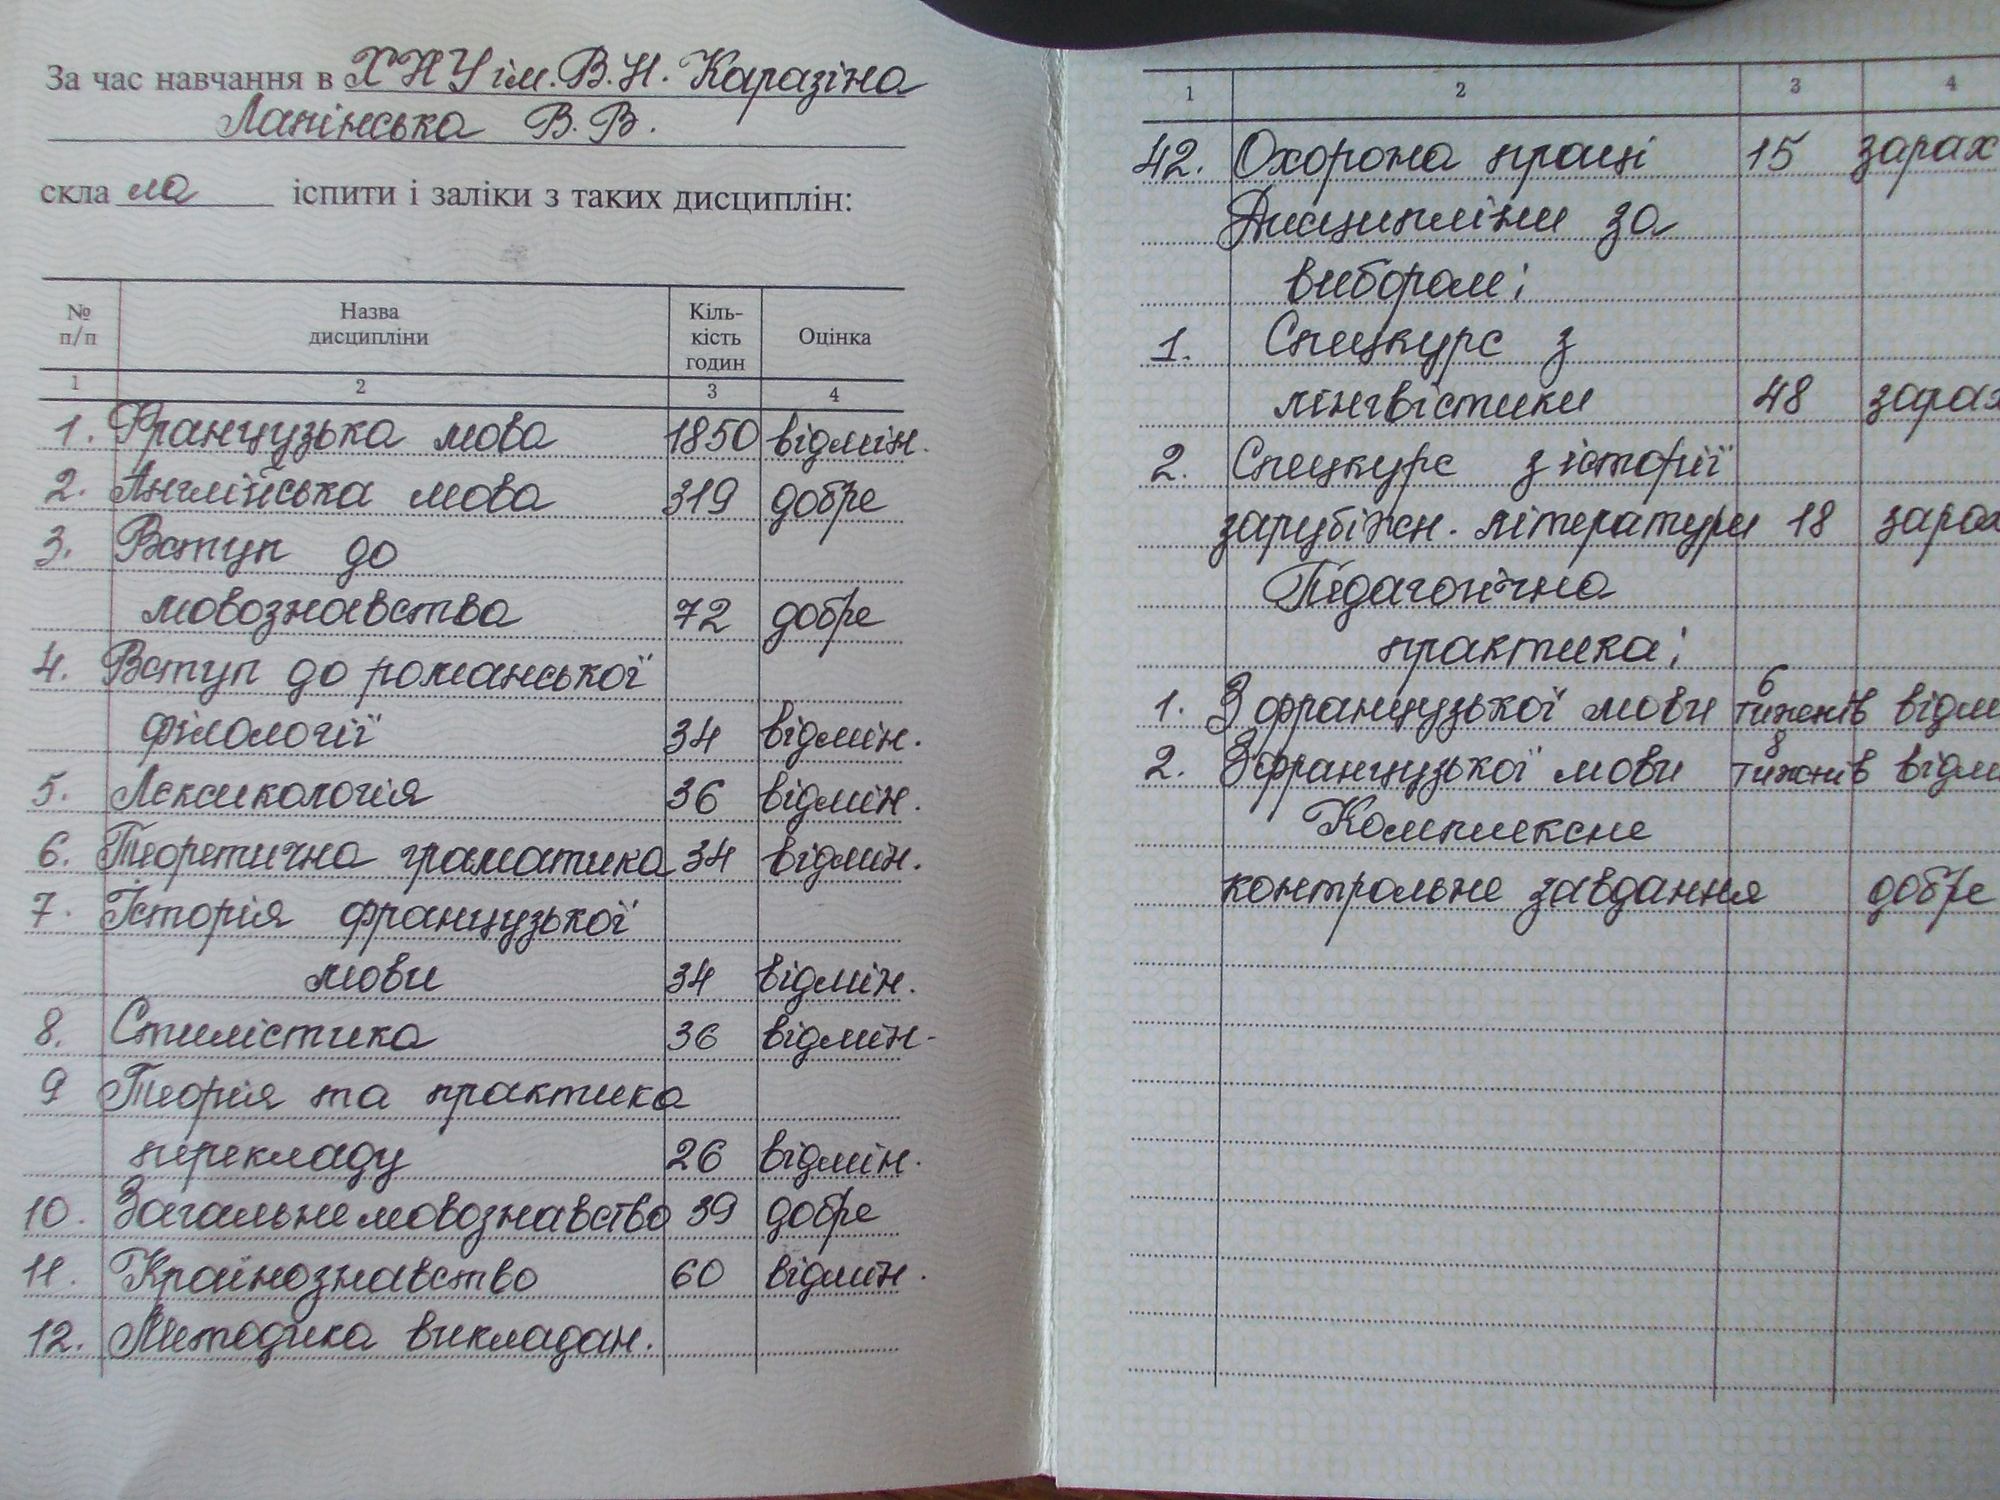 За час навчання в ХНУ ім. В.Н. Каразіна
Ланінська В.В.
скла ла іспити і заліки з таких дисциплін:
№ п/п Назва дисципліни Кіль-кість годин Оцінка
1 2 3 4
1. Французька мова 1850 відмін.
2. Англійська мова 319 добре
3. Вступ до
мовознавства 72 добре
4. Вступ до романської
філології 34 відмін.
5. Лексикологія 36 відмін.
6. Теоретична граматика 34 відмін.
7. Історія французької
мови 34 відмін.
8. Стилістика 36 відмін.
9 Теорія та практика
перекладу 26 відмін.
10. Загальне мовознавство 39 добре
11. Країнознавство 60 відмін.
12. Методика викладан.
1 2 3 4
42. Охорона праці 15 зарах
Дисципліни за
вибором:
1. Спецкурс з
лінгвістики 48 зарах
2. Спецкурс з історії
зарубіжн. літератури 18 зарах
Педагогічна
практика:
1. З французької мови 6 тижнів відмі
2. З французької мови 8 тижнів відмі
Комплексне
контрольне завдання добре